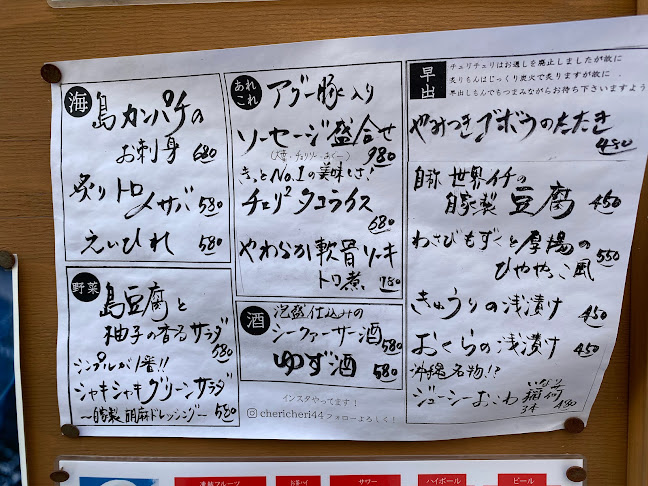 海
島カンパチの
お刺身 680
炙りトロ
〆サバ 580
えいひれ 580
野菜
島豆腐と
柚子の香るサラダ
580
シンプルが1番!!
シャキシャキグリーンサラダ
～自家製 胡麻ドレッシング～ 580
あれ
これ
アグー豚入り
ソーセージ盛合せ
980
きっとNo.1の美味しさ!
チェリ²タコライス
680
やわらか軟骨ソーキ
トロ煮 780
酒
泡盛仕込みの
シークァーサー酒
580
ゆず酒 580
インスタやってます！
chericheri44フォローよろしく！
早出
チェリチェリはお通しを廃止しましたが故に
炙りもんはじっくり炭火で炙りますが故に、
早出しもんでもつまみながらお待ち下さいますよう
やみつきゴボウのたたき
480
自称 世界イチの
自家製 豆腐 450
わさびもずくと厚揚の
ひややっこ風 550
きゅうりの浅漬け 450
おくらの浅漬け 450
沖縄名物!?
ジューシーおこわ いなり
稲荷
3ヶ 480
凍結フルーツ
お茶ハイ
サワー
ハイボール
ビール